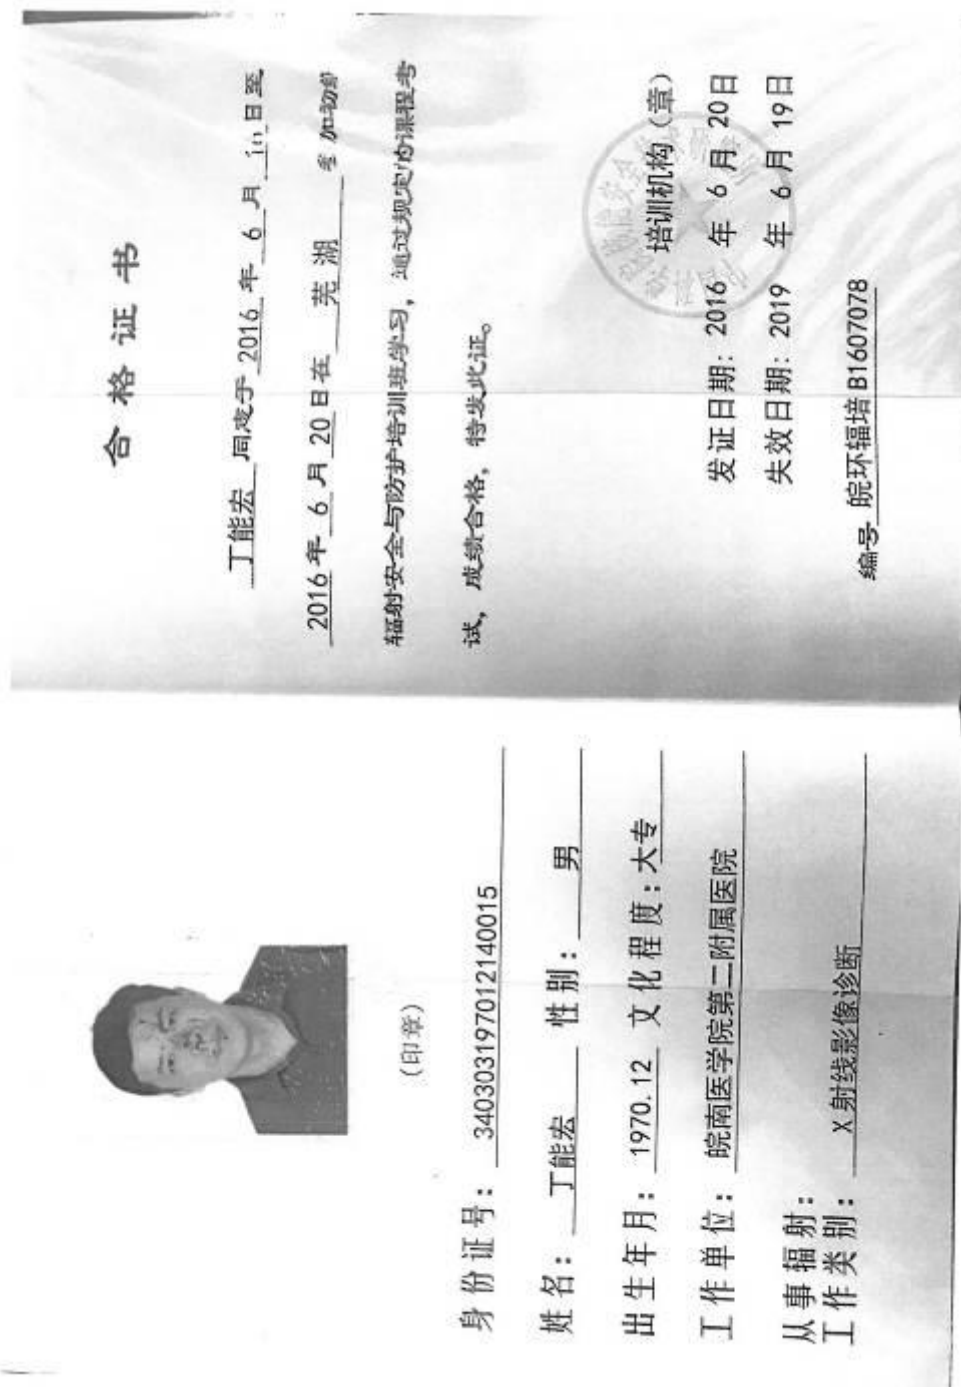 (印章)
身份证号：340303197012140015
姓名：丁能宏 性别：男
出生年月：1970.12 文化程度：大专
工作单位：皖南医学院第二附属医院
从事辐射：
工作类别：X射线影像诊断
合格证书
丁能宏 同志于 2016 年 6 月 日至
2016 年 6 月 20 日在 芜湖 参加初级
辐射安全与防护培训班学习，通过规定的课程考
试，成绩合格，特发此证。
培训机构（章）
发证日期：2016 年 6 月 20日
失效日期：2019 年 6 月 19日
编号 皖环辐培B1607078